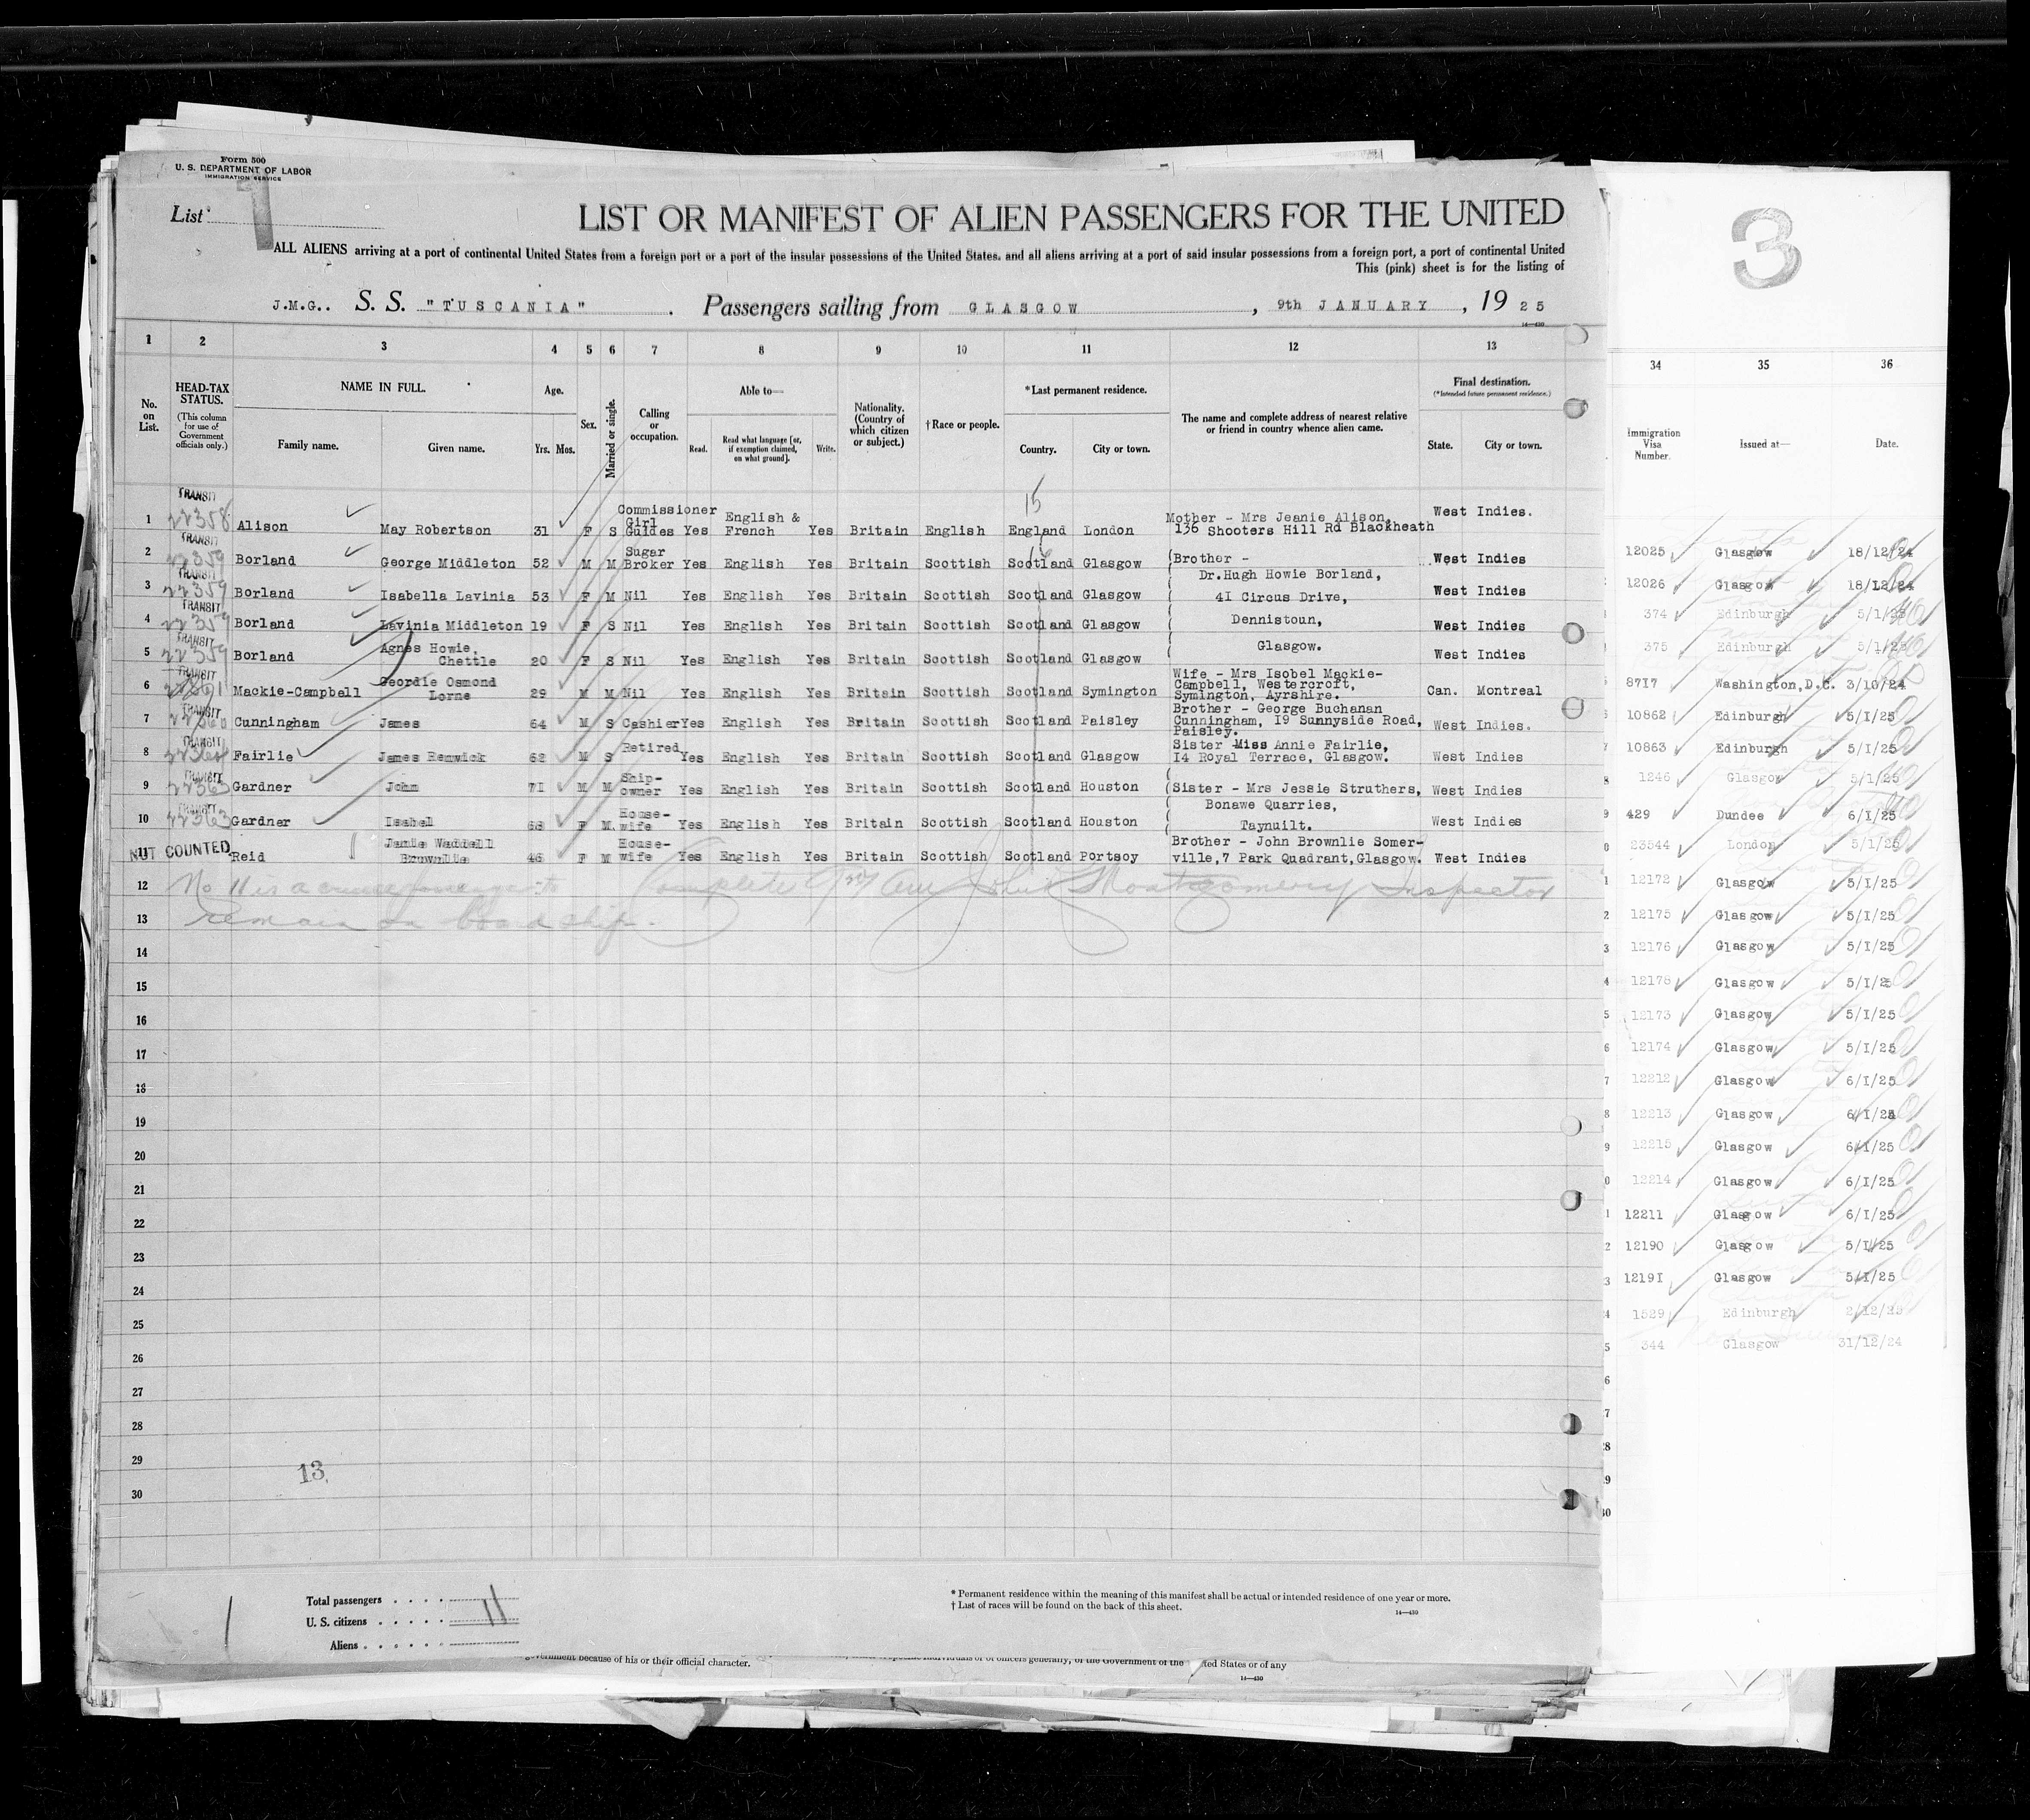 Form 500
U. S. DEPARTMENT OF LABOR
IMMIGRATION SERVICE
List
LIST OR MANIFEST OF ALIEN PASSENGERS FOR THE UNITED
ALL ALIENS arriving at a port of continental United States from a foreign port or a port of the insular possessions of the United States, and all aliens arriving at a port of said insular possessions from a foreign port, a port of continental United
This (pink) sheet is for the listing of
J.M.G.. S. S. "TUSCANIA" . Passengers sailing from GLASGOW , 9th JANUARY , 19 25
14—430
1 2 3 4 5 6 7 8 9 10 11 12 13
No. on List.
HEAD-TAX STATUS.
(This column for use of Government officials only.)
NAME IN FULL.
Family name. Given name.
Age.
Yrs. Mos.
Sex.
Married or single.
Calling or occupation.
Able to—
Read. Read what language [or, if exemption claimed, on what ground]. Write.
Nationality. (Country of which citizen or subject.)
†Race or people.
*Last permanent residence.
Country. City or town.
The name and complete address of nearest relative or friend in country whence alien came.
Final destination.
(*Intended future permanent residence.)
State. City or town.
15
1 TRANSIT 22358 Alison May Robertson 31 F S Commissioner Girl Guides Yes English & French Yes Britain English England London Mother - Mrs Jeanie Alison, 136 Shooters Hill Rd Blackheath West Indies.
2 TRANSIT 22359 Borland George Middleton 52 M M Sugar Broker Yes English Yes Britain Scottish Scotland Glasgow (Brother - West Indies
Dr.Hugh Howie Borland,
3 TRANSIT 22359 Borland Isabella Lavinia 53 F M Nil Yes English Yes Britain Scottish Scotland Glasgow 41 Circus Drive, West Indies
4 TRANSIT 22359 Borland Lavinia Middleton 19 F S Nil Yes English Yes Britain Scottish Scotland Glasgow Dennistoun, West Indies
5 TRANSIT 22359 Borland Agnes Howie, Chettle 20 F S Nil Yes English Yes Britain Scottish Scotland Glasgow Glasgow. West Indies
6 TRANSIT Mackie-Campbell Geordie Osmond Lorne 29 M M Nil Yes English Yes Britain Scottish Scotland Symington Wife - Mrs Isobel Mackie-Campbell, Westercroft, Symington, Ayrshire. Can. Montreal
7 TRANSIT Cunningham James 64 M S Cashier Yes English Yes Britain Scottish Scotland Paisley Brother - George Buchanan Cunningham, 19 Sunnyside Road, Paisley. West Indies.
8 TRANSIT Fairlie James Renwick 62 M S Retired Yes English Yes Britain Scottish Scotland Glasgow Sister Miss Annie Fairlie, 14 Royal Terrace, Glasgow. West Indies
9 TRANSIT 22363 Gardner John 71 M M Ship-owner Yes English Yes Britain Scottish Scotland Houston (Sister - Mrs Jessie Struthers, West Indies
Bonawe Quarries,
10 TRANSIT 22363 Gardner Isabel 68 F M. House-wife Yes English Yes Britain Scottish Scotland Houston Taynuilt. West Indies
11 NOT COUNTED Reid Jamie Waddell Brownlie 46 F M House-wife Yes English Yes Britain Scottish Scotland Portsoy Brother - John Brownlie Somer-ville,7 Park Quadrant,Glasgow. West Indies
12 No 11 is a cruise passenger to Complete John Montgomery Inspector
13 remain on board ship.
14
15
16
17
18
19
20
21
22
23
24
25
26
27
28
29
30
13
Total passengers
U. S. citizens
Aliens
11
* Permanent residence within the meaning of this manifest shall be actual or intended residence of one year or more.
† List of races will be found on the back of this sheet.
14—430
government because of his or their official character.
ted States or of any
14—430
3
34 35 36
Immigration Visa Number. Issued at— Date.
12025 Glasgow 18/12/24
12026 Glasgow 18/12/24
374 Edinburgh 5/1/25
375 Edinburgh 5/1/25
8717 Washington,D.C. 3/10/24
10862 Edinburgh 5/1/25
10863 Edinburgh 5/1/25
1246 Glasgow 5/1/25
429 Dundee 6/1/25
23544 London 5/1/25
12172 Glasgow 5/1/25
12175 Glasgow 5/1/25
12176 Glasgow 5/1/25
12178 Glasgow 5/1/25
12173 Glasgow 5/1/25
12174 Glasgow 5/1/25
12212 Glasgow 6/1/25
12213 Glasgow 6/1/25
12215 Glasgow 6/1/25
12214 Glasgow 6/1/25
12211 Glasgow 6/1/25
12190 Glasgow 5/1/25
12191 Glasgow 5/1/25
1529 Edinburgh 2/12/25
344 Glasgow 31/12/24